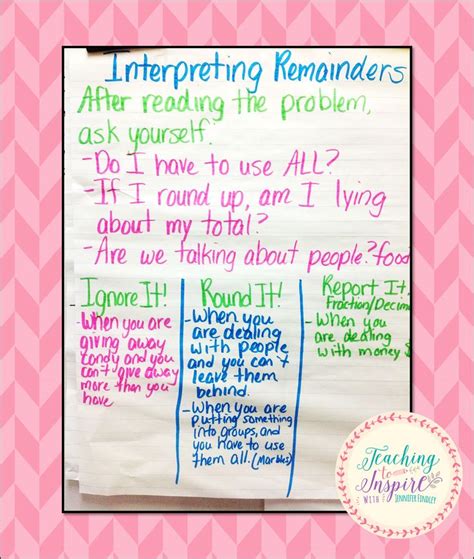 Interpreting Remainders
After reading the problem,
ask yourself:
-Do I have to use ALL?
-If I round up, am I lying
about my total?
-Are we talking about people? food
Ignore It!
-When you are
giving away
candy and you
can't give away
more than you
have
Round It!
-When you
are dealing
with people
and you can't
leave them
behind.
-When you are
putting something
into groups, and
you have to use
them all. (Marbles)
Report It.
Fraction/Decim
-When you
are dealing
with money $
Teaching
to
Inspire
WITH
JENNIFER FINDLEY